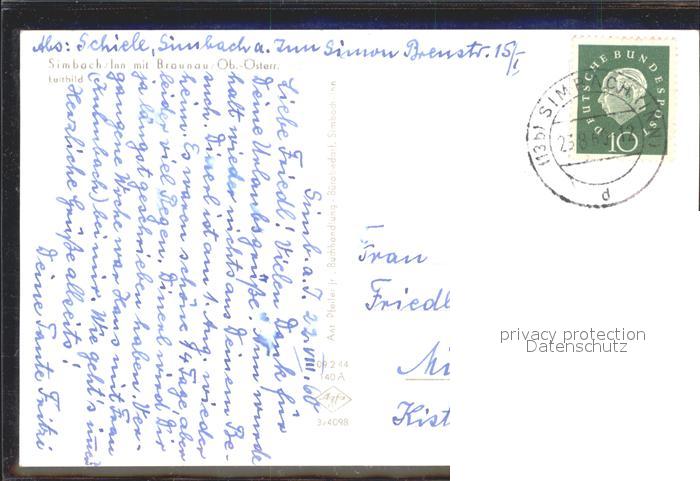 Abs: Schiele, Simbach a. Inn Simon Brenstr. 15/I
Simbach/Inn mit Braunau/Ob.-Österr.
Luftbild
Simb. a. I. 22.VIII.60
Liebe Friedl! Vielen Dank für
Deine Urlaubsgrüße. Nun wurde
halt wieder nichts aus Deinem Be-
such. Dinerl ist am 1. Aug. wieder
heim. Es waren schöne 14 Tage aber
leider viel Regen. Dinerl wird Dir
ja längst geschrieben haben. Ver-
gangene Woche war Hans mit Frau
bei mir. Wie geht's
Herzliche Grüße allseits!
Deine Tante Fritzi
Ant. Pfeifer jr., Buchhandlung - Bürobedarf, Simbach Inn
09 2 44
40 A
Agfa
3/4098
DEUTSCHE BUNDESPOST
10
(13b) SIMBACH (INN)
d
Frau
Friedl
Mi
Kist
privacy protection
Datenschutz